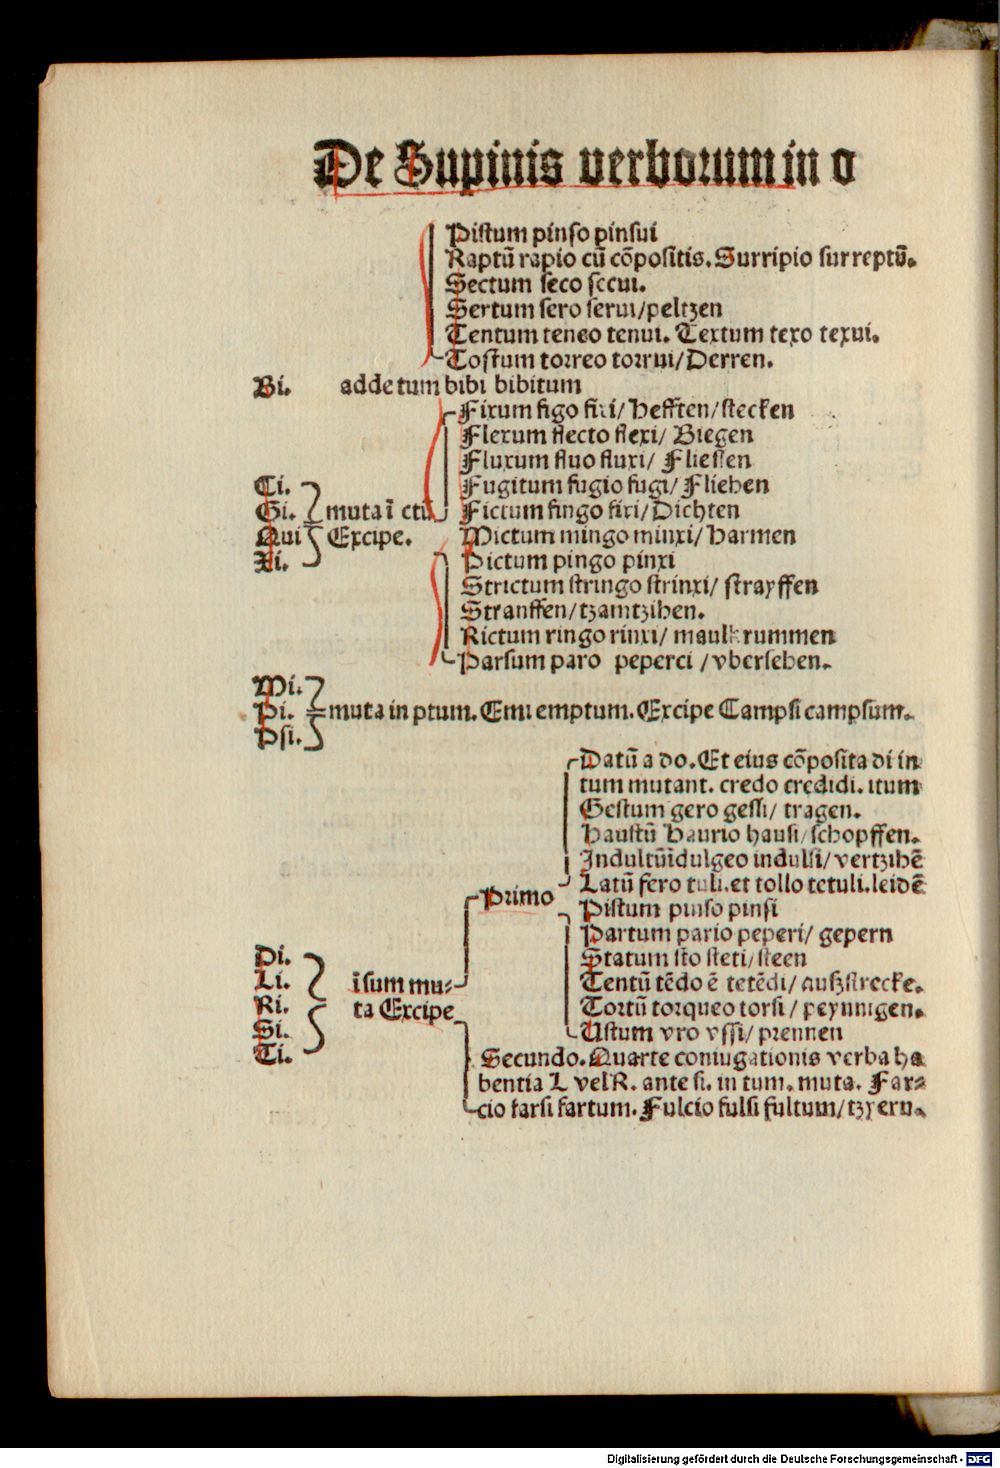 De Supinis verborum in o
Pistum pinso pinsui
Raptū rapio cū cōpositis. Surripio surreptū.
Sectum seco secui.
Sertum sero serui/peltzen
Tentum teneo tenui. Textum texo texui.
Tostum torreo torrui/Derren.
Bi. adde tum bibi bibitum
Fixum figo fixi/Hefften/stecken
Flexum flecto flexi/ Biegen
Fluxum fluo fluxi/ Fliessen
Ci. Fugitum fugio fugi/Fliehen
Gi. muta ī ctū Fictum fingo fixi/Dichten
Qui Excipe. Mictum mingo minxi/Harmen
Xi. Pictum pingo pinxi
Strictum stringo strinxi/ strayffen
Stranffen/tzamtzihen.
Rictum ringo rinxi/ maulkrummen
Parsum paro peperci /vbersehen.
Mi.
Pi. muta in ptum. Emi emptum. Excipe Campsi campsum.
Psi.
Datū a do. Et eius cōposita di in
tum mutant. credo credidi. itum
Gestum gero gessi/ tragen.
Haustū Haurio hausi/schopffen.
Indultū īdulgeo indulsi/vertzihē
Primo Latū fero tuli. et tollo tetuli. leidē
Pistum pinso pinsi
Partum pario peperi/ gepern
Di. Statum sto steti/steen
Li. īsum mu- Tentū tēdo ē tetēdi/außstrecke.
Ri. ta Excipe Tortū torqueo torsi/ peynnigen.
Si. Ustum vro vssi/ prennen
Ti. Secundo. Quarte coniugationis verba ha
bentia L vel R. ante si. in tum. muta. Far-
cio farsi fartum. Fulcio fulsi fultum/tzyern.
Digitalisierung gefördert durch die Deutsche Forschungsgemeinschaft - DFG